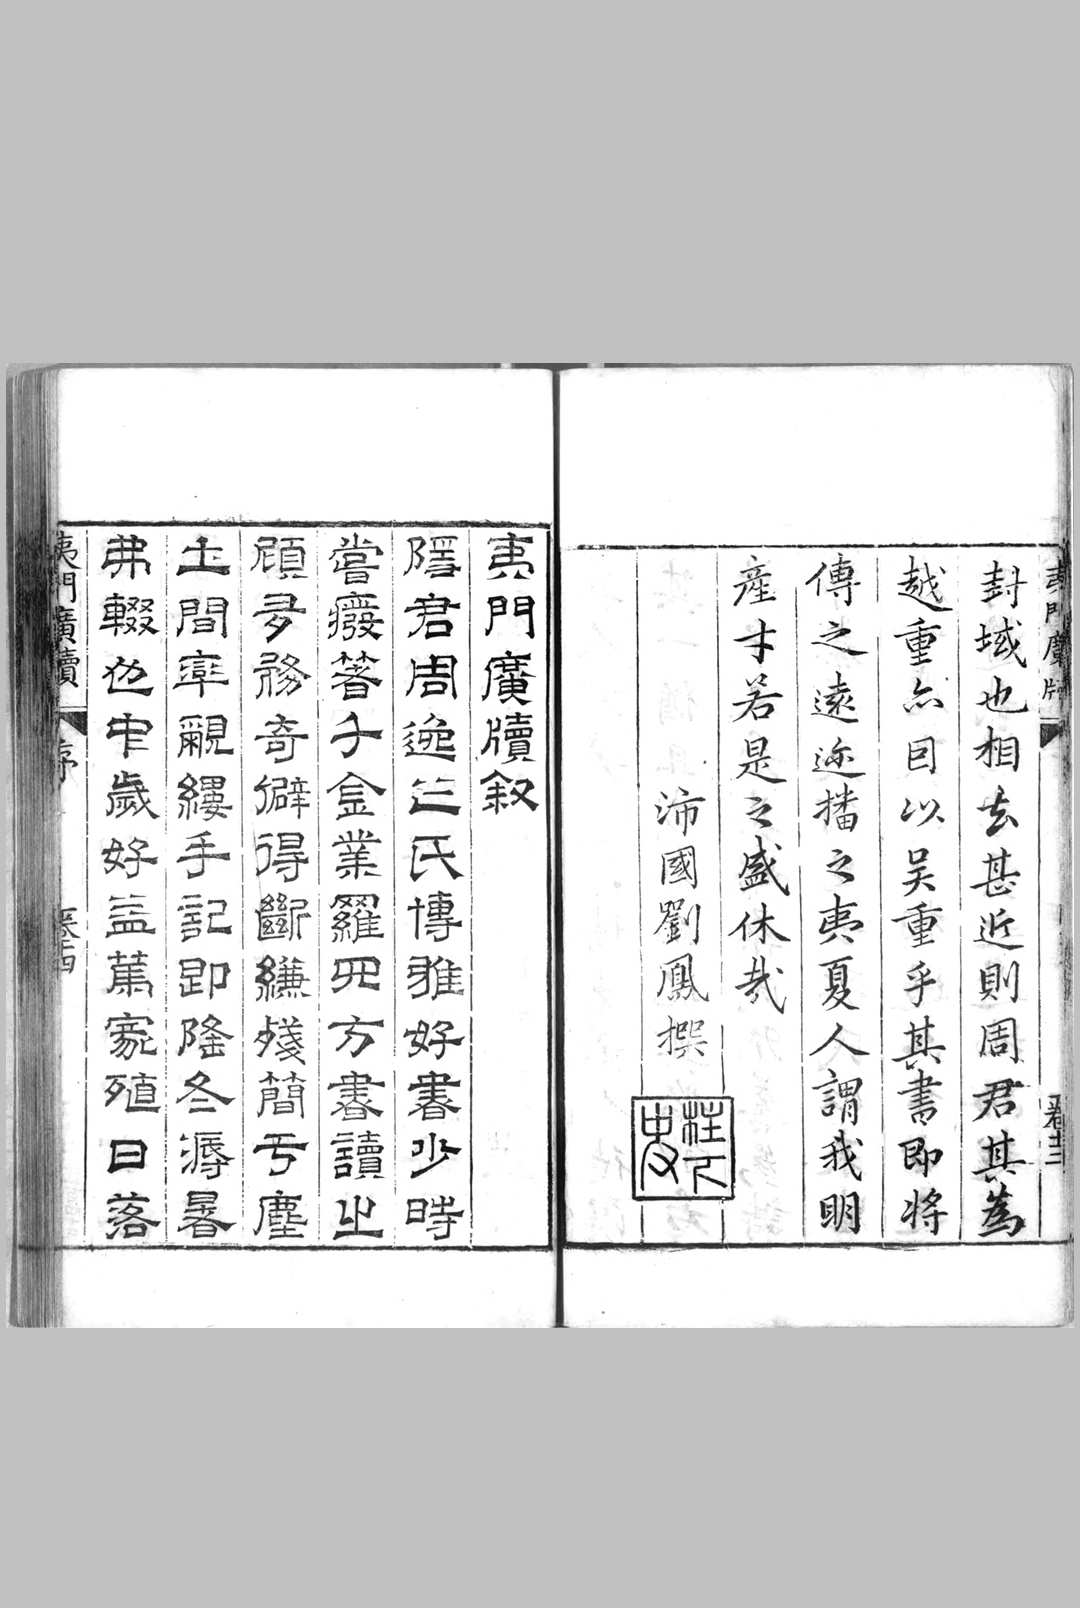 封域也相去甚近則周君其為
越重亦目以吴重乎其書即将
傳之遠迩播之夷夏人謂我明
産才若是之盛休哉
沛國劉鳳撰
柱下史
夷門廣牘叙
隱君周逸之氏博雅好書少時
嘗癈著千金業羅四方書讀之
顧多務奇僻得斷縑殘簡于塵
土間率覼縷手記即隆冬溽暑
弗輟也中歲好益篤家殖日落
夷門廣牘
序